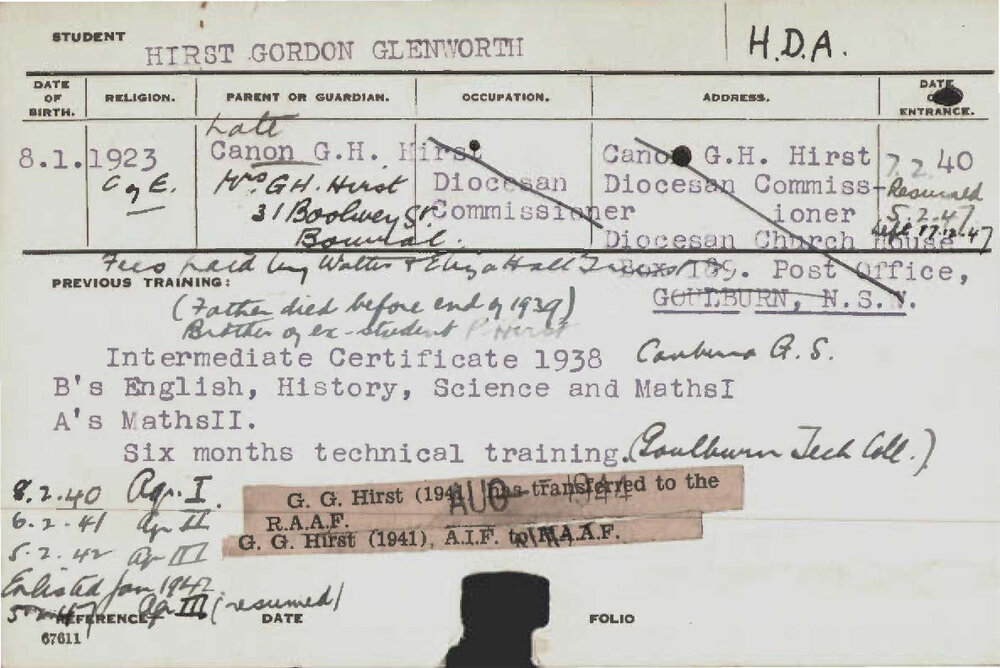 STUDENT
HIRST GORDON GLENWORTH
H.D.A.
DATE OF BIRTH.
RELIGION.
PARENT OR GUARDIAN.
OCCUPATION.
ADDRESS.
DATE
ENTRANCE.
8.1.1923
C of E.
Late
Canon G.H. Hirst
Mrs G H. Hirst
31 Boolwey St
Bowral.
Diocesan
Commissioner
Canon G.H. Hirst
Diocesan Commiss-
ioner
Diocesan Church House
Box 189. Post Office,
GOULBURN, N.S.W.
7.2.40
Resumed
5.2.47
Left 17.12.47
Fees paid by Walter & Eliza Hall
PREVIOUS TRAINING:
(Father died before end of 1939)
Brother of ex-student P Hirst
Intermediate Certificate 1938 Canberra G.S.
B's English, History, Science and MathsI
A's MathsII.
Six months technical training. (Goulburn Tech Coll.)
8.2.40 Agr. I
6.2.41 Agr II
5.2.42 Agr III
Enlisted Jan 1942
5.2.47 Agr III (resumed)
G. G. Hirst (1941) has transferred to the
R.A.A.F.
AUG 1944
G. G. Hirst (1941), A.I.F. to R.A.A.F.
REFERENCE
DATE
FOLIO
67611